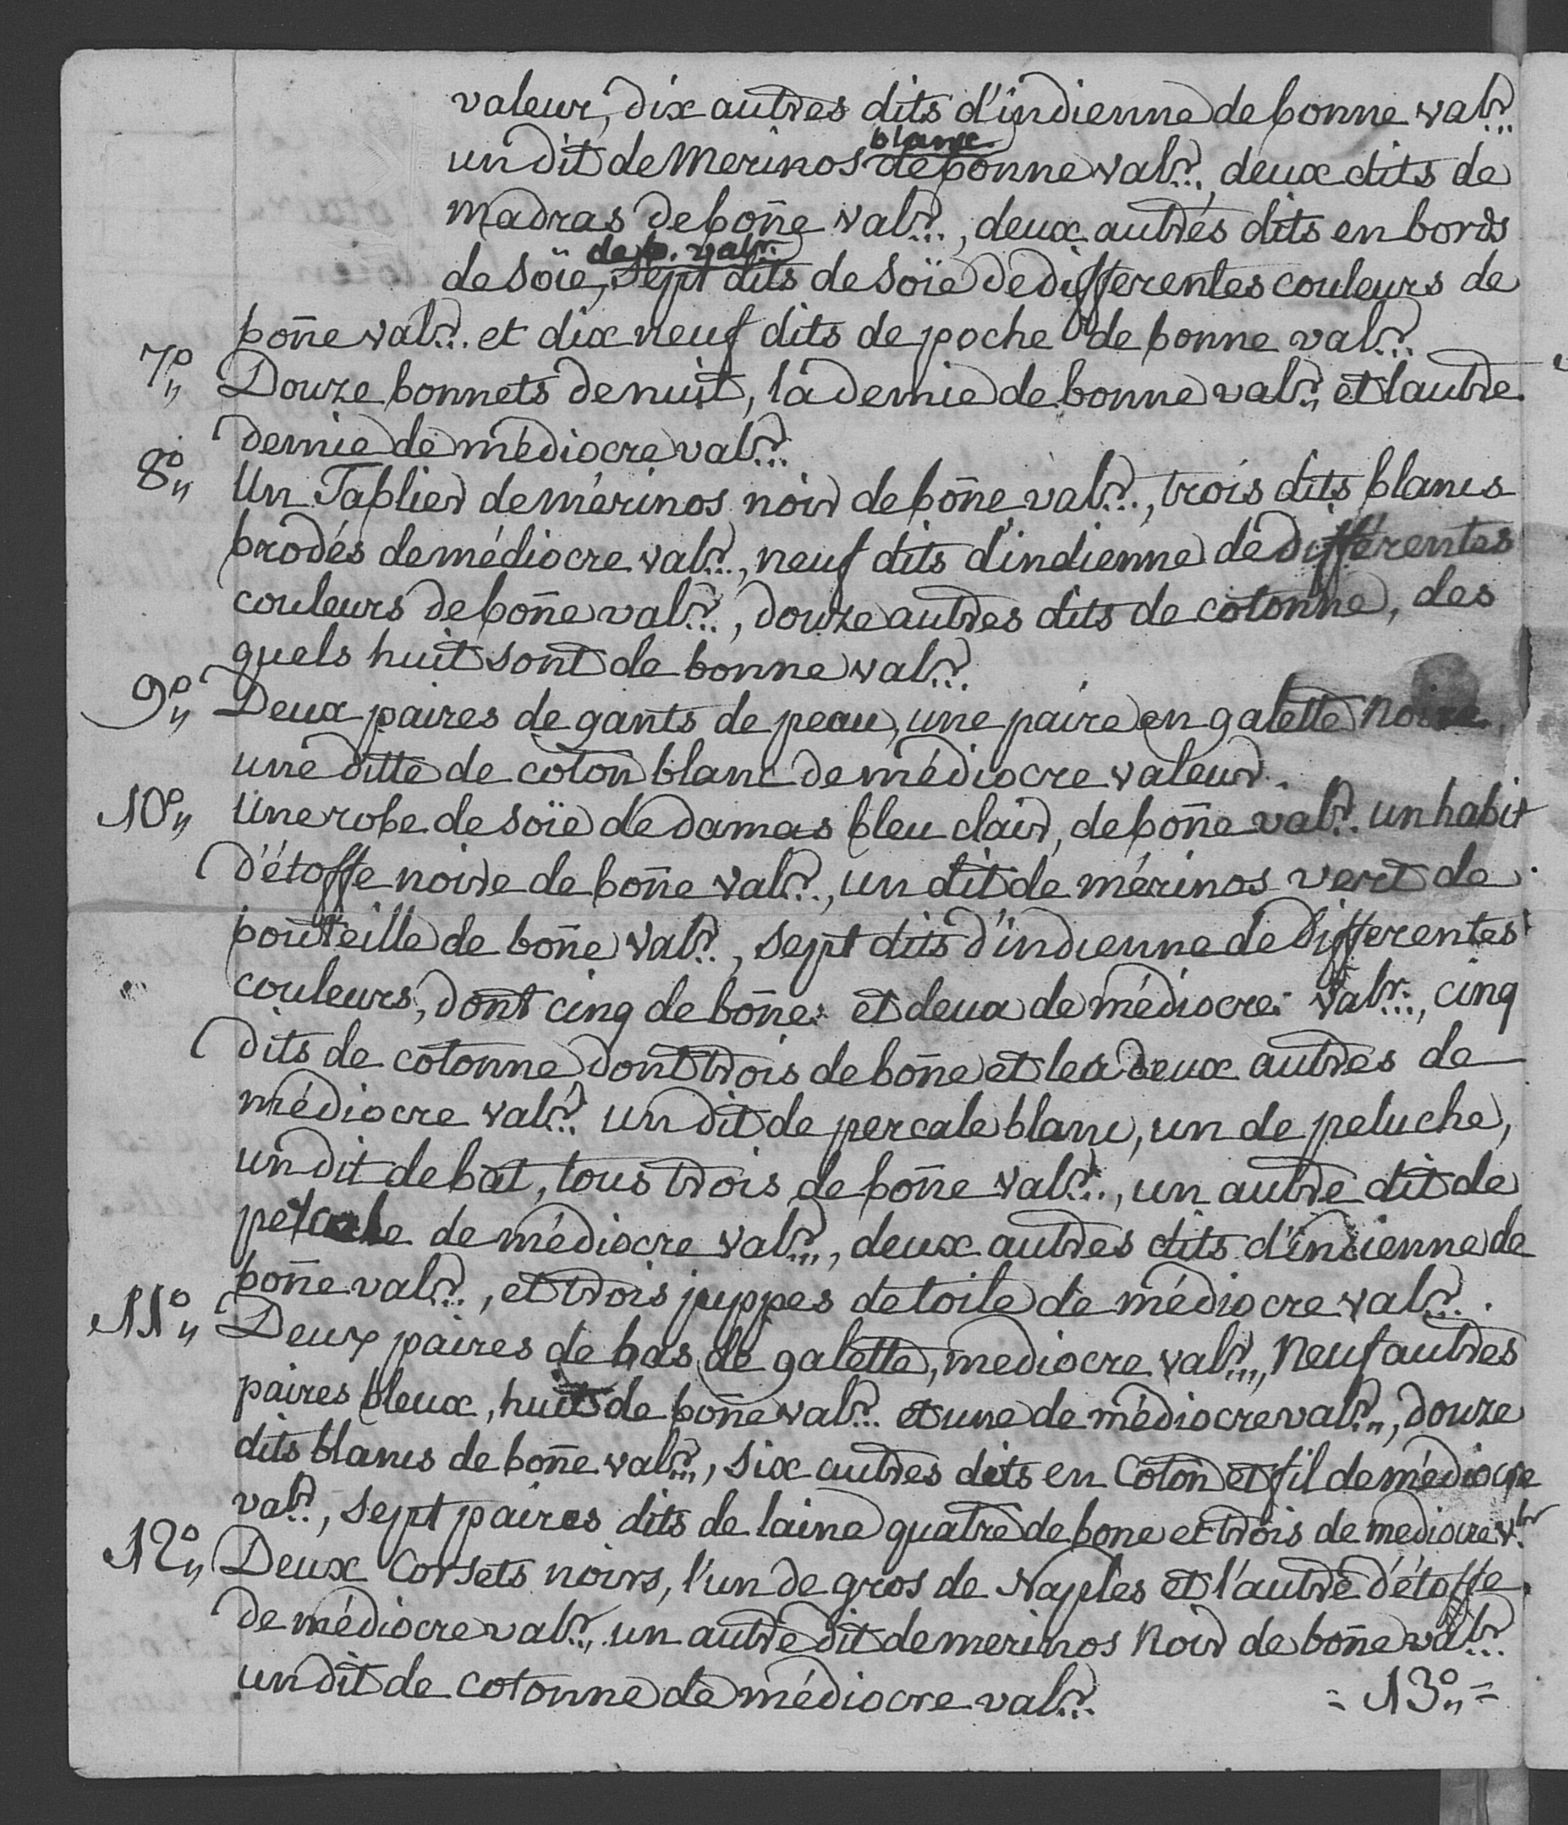 valeur, dix autres dits d'indienne de bonne val.r
un dit de Merinos blanc de bonne val.r, deux dits de
madras de boñe val.r, deux autres dits en bords
de soïe, de b. val.r sept dits de soïe de differentes couleurs de
boñe val.r et dix neuf dits de poche de bonne val.r
7.º Douze bonnets de nuit, la demie de bonne val.r, et l'autre
demie de médiocre val.r
8.º Un Tablier de mérinos noir de boñe val.r, trois dits blancs
brodés de médiocre val.r, neuf dits d'indienne de différentes
couleurs de boñe val.r, douze autres dits de cotonne, des
quels huit sont de bonne val.r
9.º Deux paires de gants de peau, une paire en galette noire,
une ditte de coton blanc de médiocre valeur.
10.º Une robe de soïe de damas bleu clair, de boñe val.r un habit
d'étoffe noire de boñe val.r, un dit de mérinos vert de
bouteille de boñe val.r, sept dits d'indienne de differentes
couleurs, dont cinq de boñe et deux de médiocre val.r, cinq
dits de cotonne dont trois de boñe et les deux autres de
médiocre val.r un dit de percale blanc, un de peluche,
un dit de bat, tous trois de boñe val.r, un autre dit de
percale de médiocre val.r, deux autres dits d'indienne de
boñe val.r, et trois juppes de toile de médiocre val.r.
11.º Deux paires de bas de galette, mediocre val.r, Neuf autres
paires bleux, huit de boñe val.r et une de médiocre val.r, douze
dits blancs de boñe val.r, six autres dits en Coton et fil de médiocre
val.r, sept paires dits de laine quatre de bone et trois de mediocre v.lr
12.º Deux Corsets noirs, l'un de gros de Naples et l'autre d'étoffe
de médiocre val.r, un autre dit de merinos Noir de boñe val.r
un dit de cotonne de médiocre val.r
= 13.º =